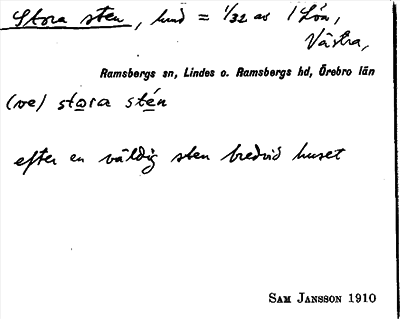 Stora sten, lmd = 1/32 av 1 Lön,
Västra,
Ramsbergs sn, Lindes o. Ramsbergs hd, Örebro län
(ve) stora stén
efter en väldig sten bredvid huset
SAM JANSSON 1910